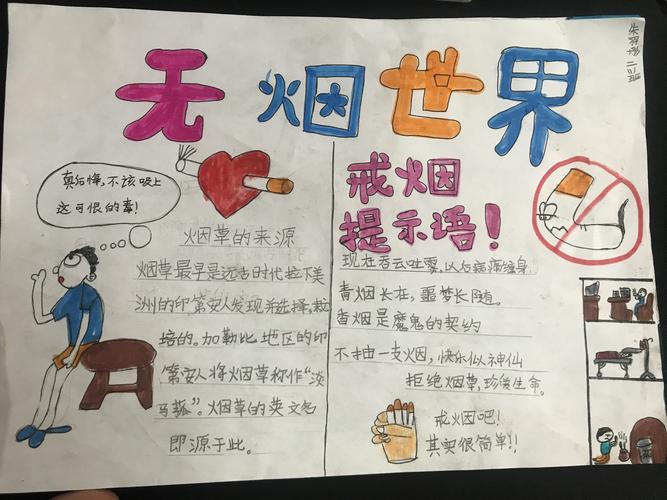 无烟世界
二(3)班
真后悔,不该吸上
这可恨的毒!
烟草的来源
烟草最早是远古时代拉丁美
洲的印第安人发现并选择,栽
培的。加勒比地区的印
第安人将烟草称作“淡
马菰”。烟草的英文名
即源于此。
戒烟
提示语!
现在吞云吐雾,以后病痛缠身
青烟长在,噩梦长随。
香烟是魔鬼的契约
不抽一支烟,快乐似神仙
拒绝烟草,珍爱生命。
戒烟吧!
其实很简单!!